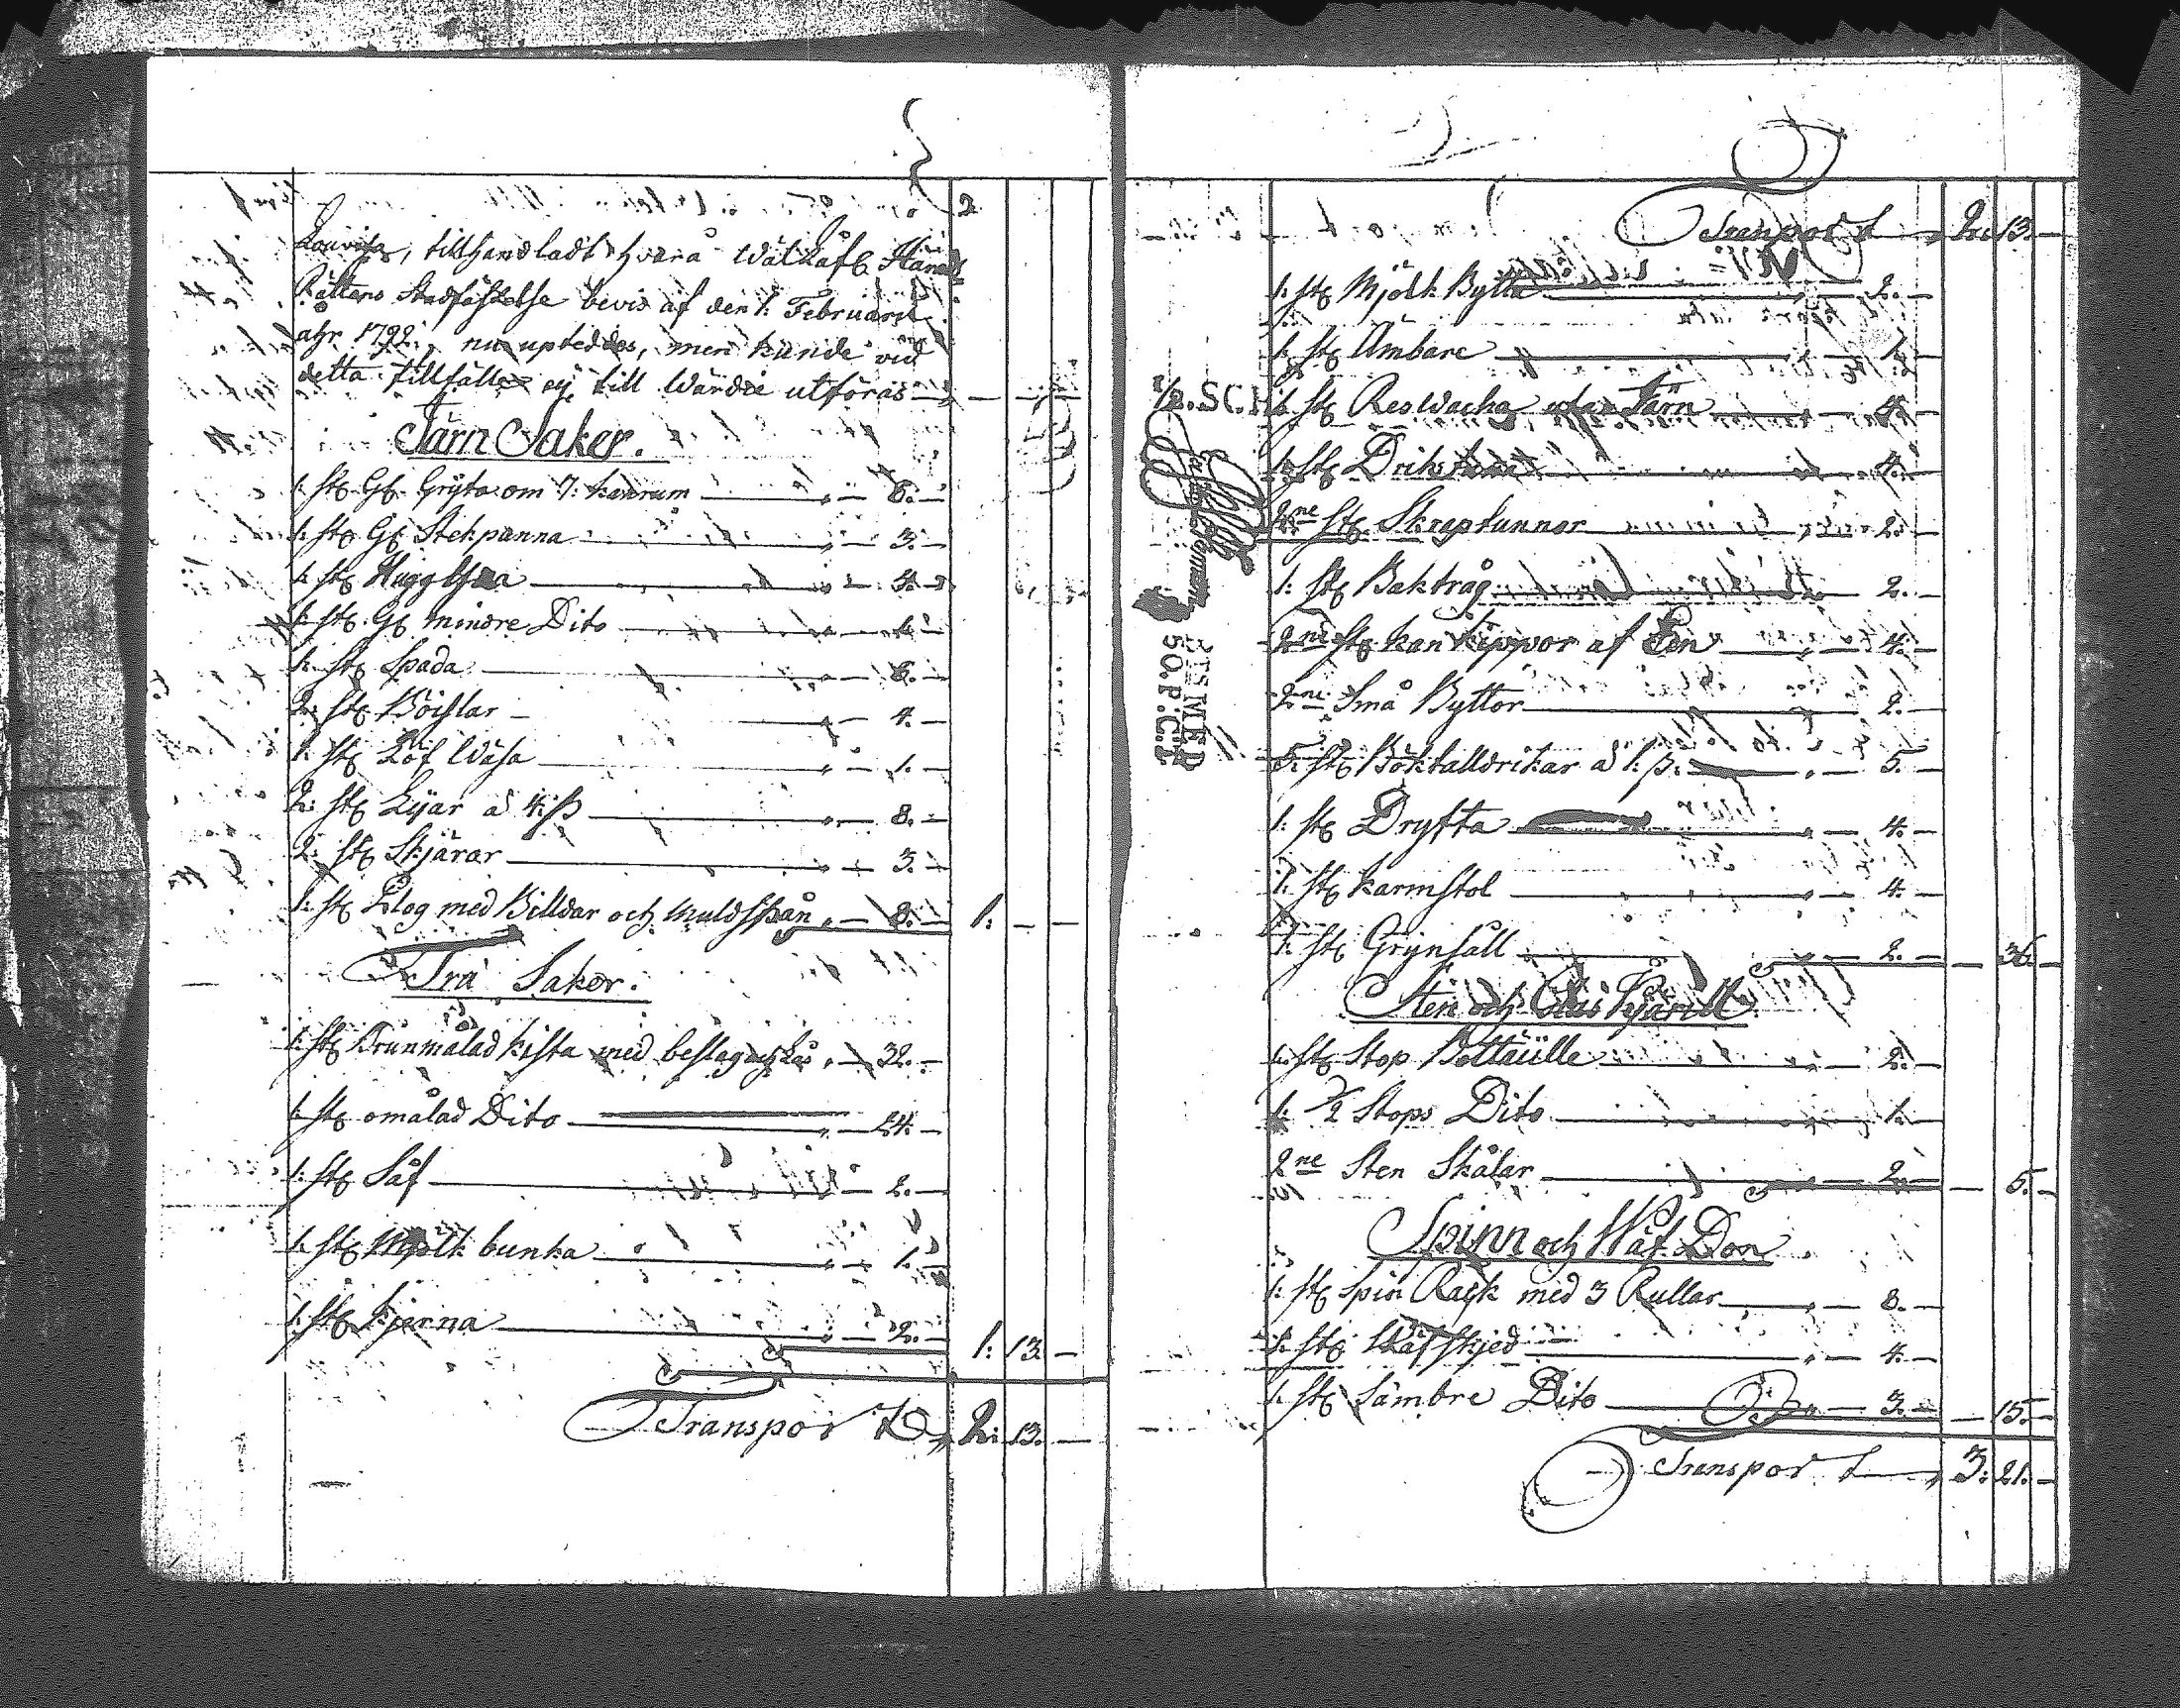 2
Lovisa, tillhandladt hvarå Wällåfl. Härads
Rättens Stadfästelse bevis af den 1. Februarii
ahr 1792. nu upteddes, men kunde vid
detta tillfälle ej till Wärde utföras — — —
Järn Saker.
1. st. Gl. Gryta om 7. kannrum — 6. —
1. st. Gl. Stekpanna — 3. —
1. st. Huggÿxa — 4. —
1. st. Gl. mindre Dito —
1. st. Spada — 6. —
2. st. Böislar — 4. —
1. st. Löf Wäsa — 1. —
2: st. Lÿar a 4 ß — 8. —
2: st. Skjärar — 3. —
1. st. Plog med Billdar och Muldspån — 8. — 1. — —
Trä Saker.
1. st. Brunmålad Kista med beslag och Lås — 32. —
1. st. omålad Dito — 24. —
1. st. Såf — 2. —
1. st. Mjölk bunka — 1. —
1. st. Kjerna — 2. — 1: 13 —
Transport 2: 13. —
Transport 2: 13. —
1. st. Mjölk Bytta — 2. —
1. st. Ämbare — 1. —
1/2. SC.
1 st. Reswacka utan Järn — 4. —
1. st. — 4. —
2ne st. Skreptunnor — 2. —
1: st. Baktråg — 2. —
2ne st. kan Kippor af En — 4. —
2ne Små Byttor — 2. —
5. st. Böktalldrikar a 1. ß. — 5. —
1. st. Dryfta — 4. —
1. st. karmstol — 4. —
1. st. Grynsåll — 2. — — 36. —
Sten och Glas Kjärill
1. st. Stop Bottäille — 2. —
1. 1/2 Stops Dito — 1. —
2ne Sten Skålar — 2. — — 5. —
Spinn och Wäf Don
1. st. Spin Rack med 3 Rullar — 8. —
1. st. Wäfskjed — 4. —
1. st. Sämbre Dito — 3. — — 15. —
Transport 3: 21. —
STÄMPEL
50. P: CT